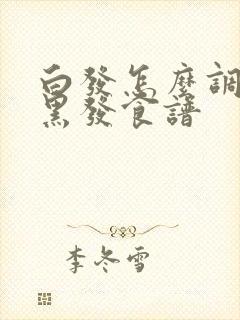 白發怎麼調
黑發食譜
李冬雪